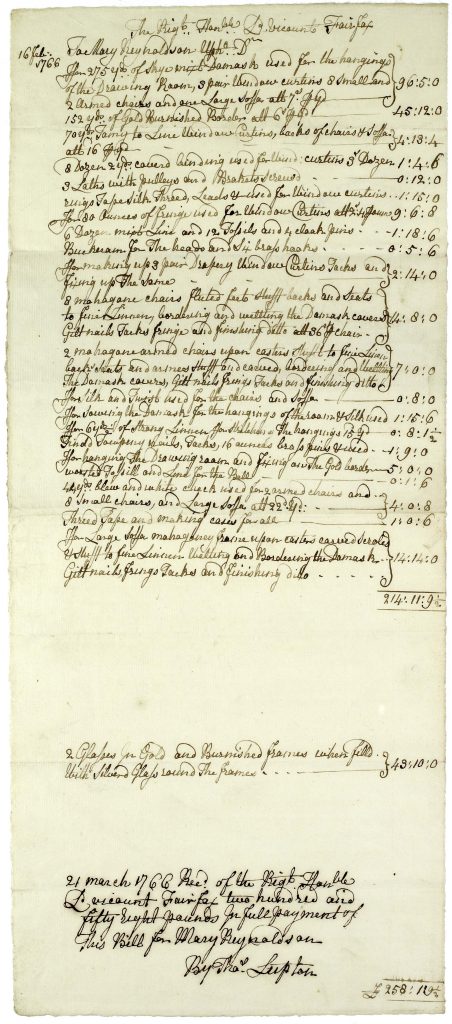 The Right Honble Ld. viscount Fairfax
16 feb: 1766
To Mary Reynoldson Uph. Dr
ffor 275 yds of Skye mixt Damask used for the hangings
of the Drawing Room, 3 pair Window curtins 8 Small and
2 Armed chairs and one Large Soffa att 7s pr yd 96:5:0
152 yds of Gold Burnished Border att 6s pr yd 45:12:0
70 yds Tamy to Line Window Curtins, backs of chairs & Soffa
att 16 pr yd 4:13:4
8 Dozen 2 yds coverd binding used for Wind: curtins 3s Dozen 1:4:6
3 Laths with pulleys and Brakets Screws 0:12:0
rings Tape Silk Thred, Leads & used for Window curtins 1:15:0
ffor 80 Ounces of fringe used for Window Curtins att 9:6:8
6 Dozen mixt Line and 12 Tossils and 4 cloak pins 1:18:6
Buckram for The heads and 54 brass hooks 0:5:6
ffor making up 3 pair Drapery Window Curtins Tacks and
fixing up The Same 2:14:0
8 mahagane chairs fluted feet Stufft backs and Seats
to fine Linnen, bordering and wettling the Damask covers
Gilt nails Tacks fringe and finishing ditto att 36s pr chair 14:8:0
2 mahagane armed chairs upon casters Stuft to fine Linen
back Seats and armes Stufft and carved, bordering and wettling
The Damask covers, Gilt nails frings Tacks and finishing ditto 7:0:0
ffor Silk and used for the chairs and Soffa 0:8:0
ffor Sowing the Damask for the hangings of the room & Silk used 1:15:6
ffor yds of Strong Linnen for The hangings 15 yd 0:8:1½
Tinnd nails, Tacks, 16 ounces brass pins used 1:9:0
ffor hanging the Drawing room and fixing on The Gold border 5:0:0
worsted Tossill and Line for the Bell 0:1:6
44 yds blew and white cheyck used for 2 armed chairs and
8 Small chairs, and Large Soffa att 22 yd: 4:0:8
Thred Tape and making cases for all 1:0:6
ffor Large Soffa mahogany frame upon casters carved Scrols
& Stufft to fine Linnen Wettling and Bordering the Damask 14:14:0
Gilt nails frings Tacks and finishing ditto
214:11:9½
2 Glases In Gold and Burnished frames when filld
With Silverd Glass round The frames 43:10:0
21 march 1766 Recd. of the Right Honble
Ld. viscount Fairfax two hundred and
fifty Eight pounds In full payment of
This Bill for Mary Reynoldson
By Thos.
£ 258:1:9½